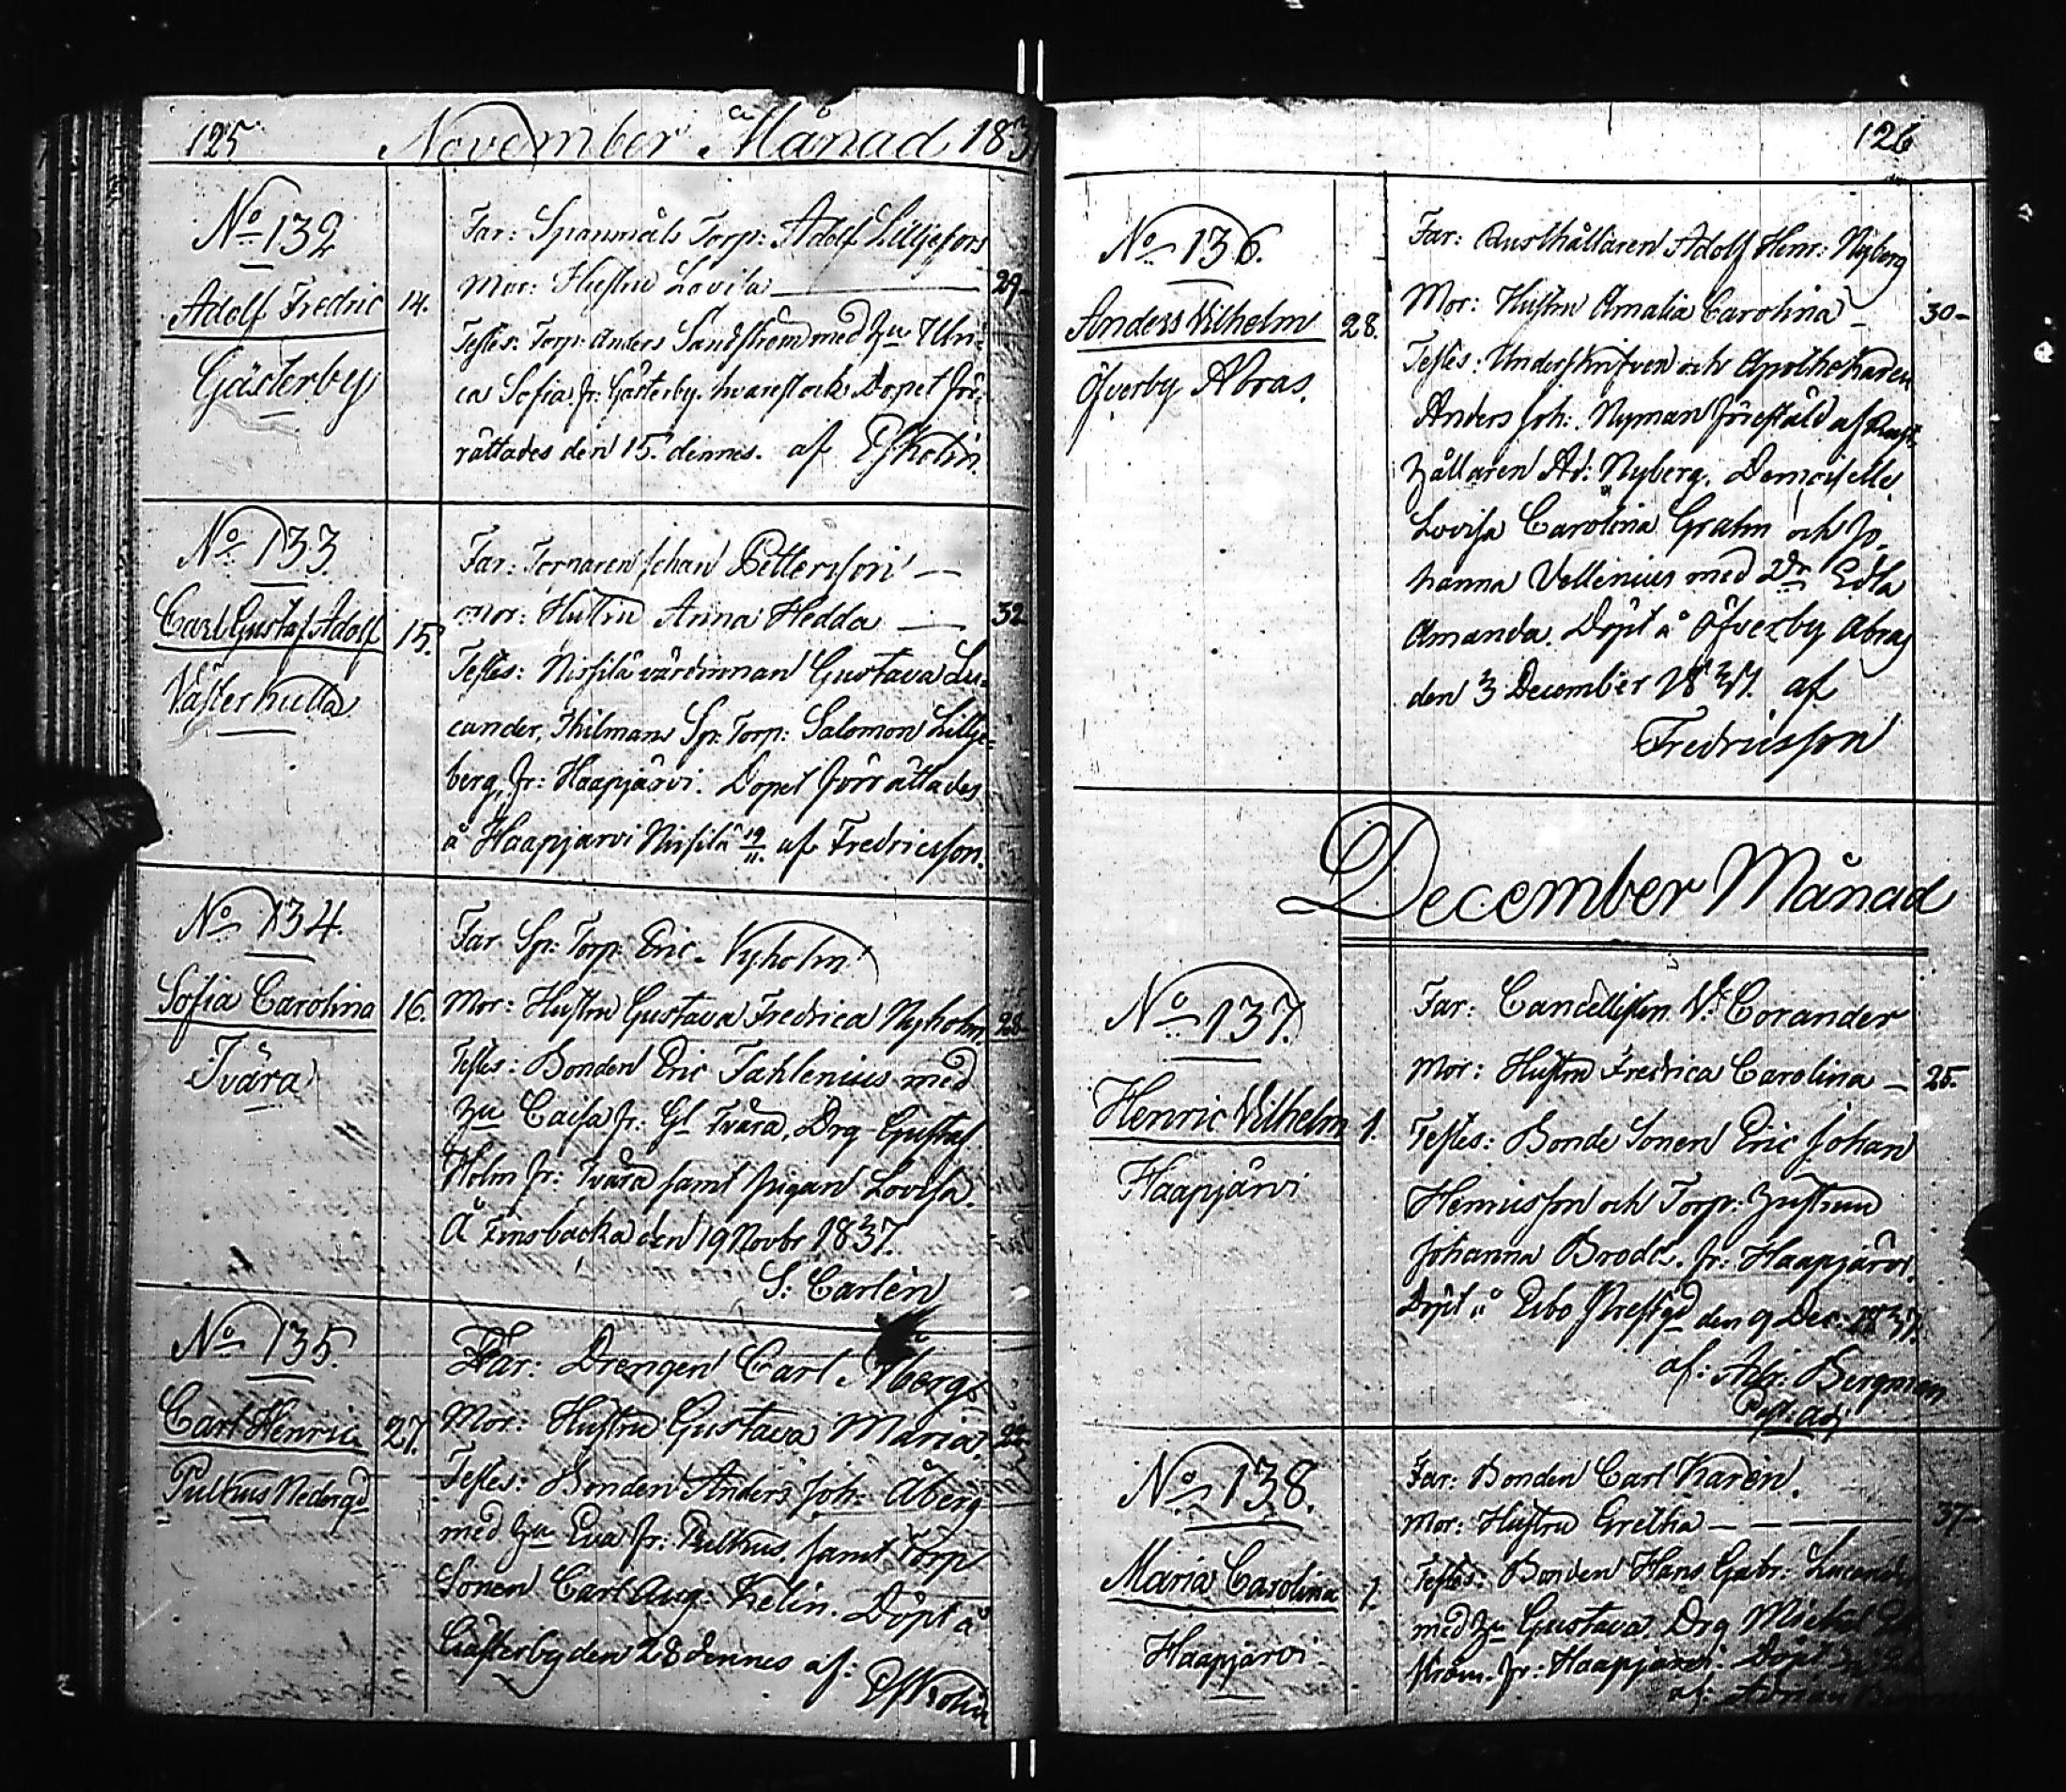 125 November Månad 183
No 132
Adolf Fredric
Gästerby
14.
Far: Spanmåls Torp: Adolf Lilljefors
Mor: Hustru Lovisa 29
Testes: Torp: Anders Sandström med Hu Ulri-
ca Sofia fr: Gästerby. hvarest ock Dopet för-
rättades den 15. dennes. af
No 133
Carl Gustaf Adolf
Västerhutta
15.
Far: Tornaren Johan Pettersson
Mor: Hustru Anna Hedda 32
Testes: Nissilä värdinnan Gustava Lu-
cander, Thilmans Sp: Torp: Salomon Lillje-
berg, fr: Haapjärvi. Dopet förrättades
å Haapjarvi Nissilä 19/11. af Fredricsson.
No 134.
Sofia Carolina
Tvära
16.
Far Sp: Torp: Eric Nyholm
Mor: Hustru Gustava Fredrica Nyholm. 28
Testes: Bonden Eric Tahlenius med
Hu Caisa fr: Gl Tvära, Drg Gustaf
Holm fr: Tvära samt pigan Lovisa.
Å Finsbacka den 19 Novbr 1837.
S: Carlén
No 135.
Carl Henric
Pulkus Nedergd
27.
Far: Drengen Carl Åberg
Mor: Hustru Gustava Maria 22
Testes: Bonden Anders Joh: Åberg
med Hu Eva fr: Pulkus, samt Torp
Sonen Carl Aug: Kelin. Döpt å
Gästerby den 28 dennes af:
126
No 136.
Anders Vilhelm
Öfverby Abras.
28.
Far: Rusthållaren Adolf Henr: Nyberg
Mor: Hustru Amalia Carolina 30
Testes: Underskrifven och Apothekaren
Anders Joh: Nyman föreställd af Rust-
hållaren Ad: Nyberg. Demoiselle
Lovisa Carolina Grahn och Jo-
hanna Vellenius med Dn Edla
Amanda. Döpt å Öfverby Abras
den 3 December 1837. af
Fredricsson
December Månad
No 137.
Henric Vilhelm
Haapjärvi
1.
Far: Cancellisten V: Corander
Mor: Hustru Fredrica Carolina 25.
Testes: Bonde Sonen Eric Johan
Henricsson och Torp: hustrun
Johanna Brodd. fr: Haapjärvi.
Döpt å Esbo Prestgd den 9 Dec: 1837.
af: Adr. Bergman
Past: adj
No 138.
Maria Carolina
Haapjärvi
1.
Far: Bonden Carl Karén.
Mor: Hustru Gretha 37
Testes: Bonden Hans Gabr: Lucander
med Hu Gustava, Drg Michel
ström. fr: Haapjärvi. Döpt
af: Adrian